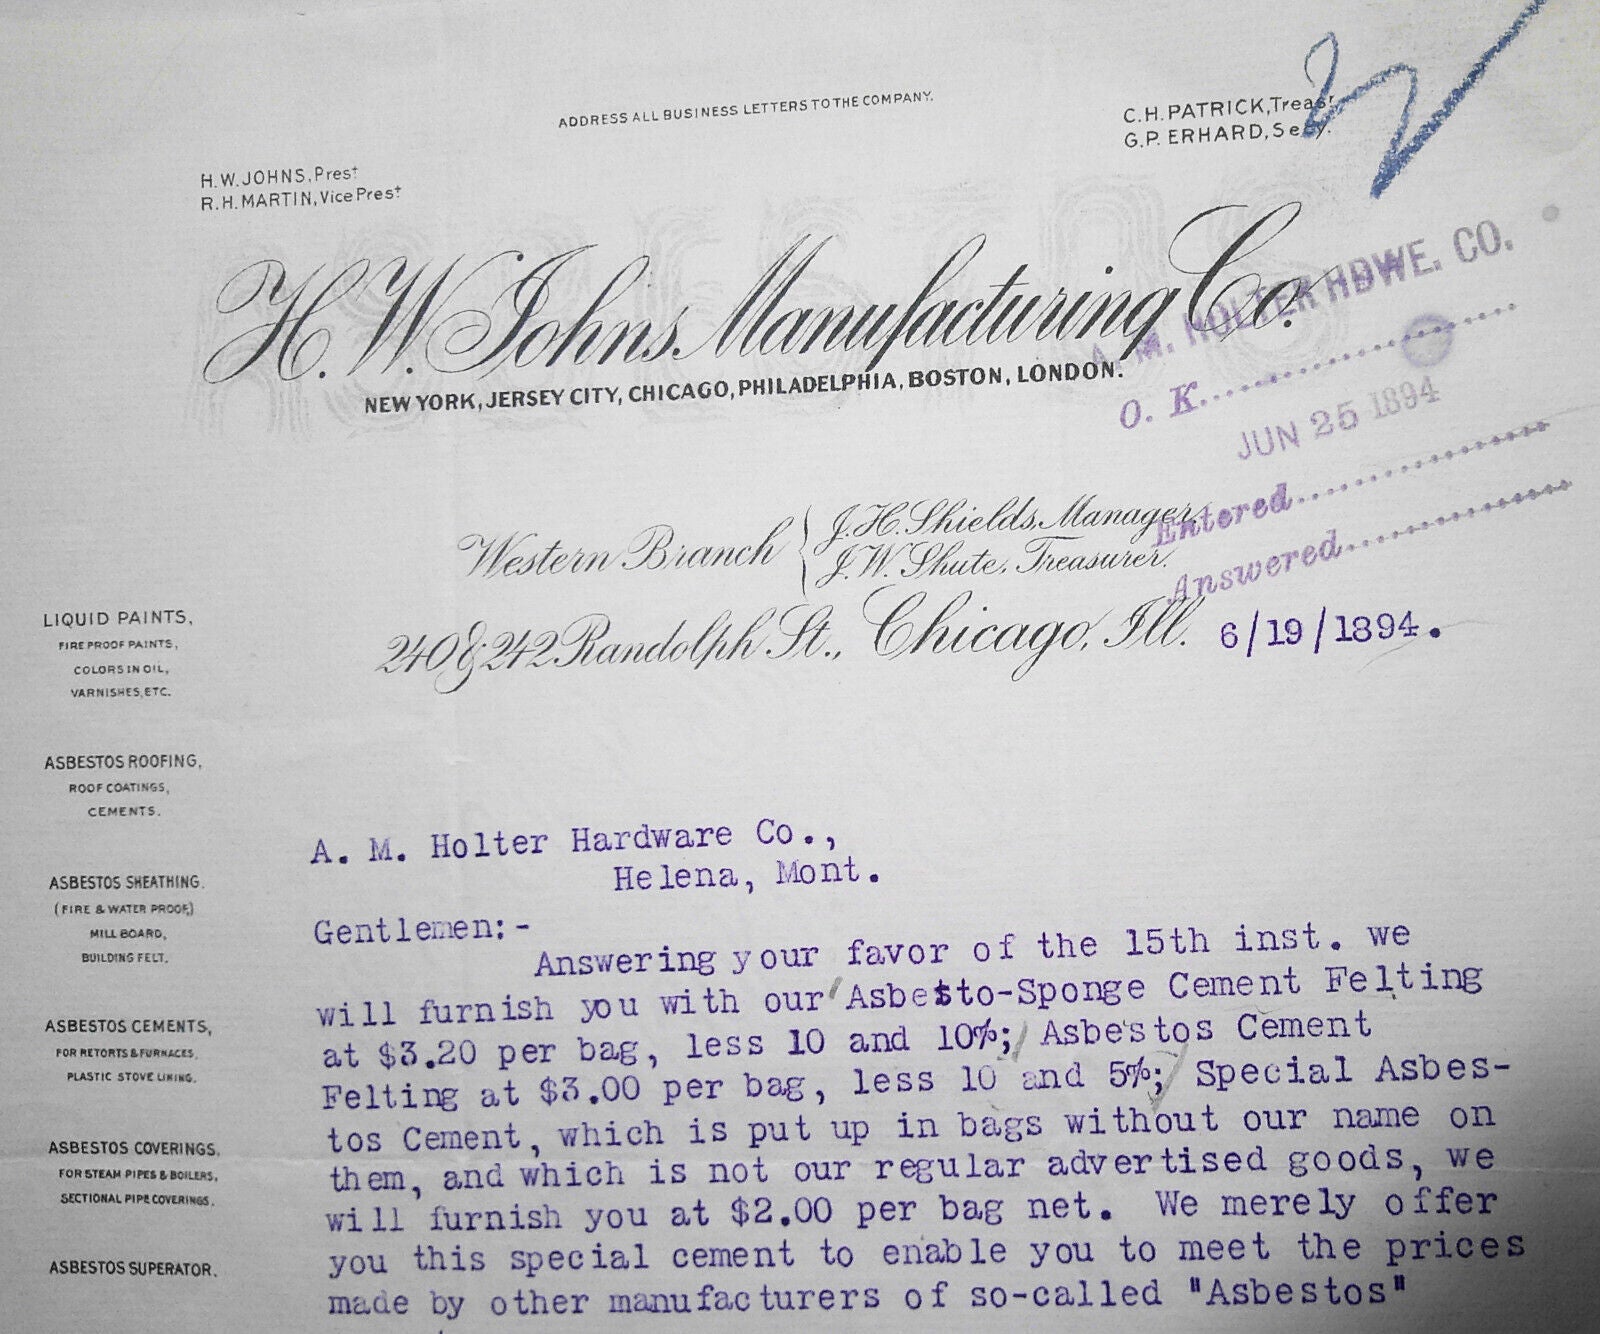 ADDRESS ALL BUSINESS LETTERS TO THE COMPANY.
C.H. PATRICK, Treasr
G.P. ERHARD, Secy.
H.W. JOHNS, Prest
R.H. MARTIN, Vice Prest
ASBESTOS
H. W. Johns Manufacturing Co.
NEW YORK, JERSEY CITY, CHICAGO, PHILADELPHIA, BOSTON, LONDON.
A. M. HOLTER HDWE. CO.
O. K.
JUN 25 1894
Entered
Answered
Western Branch
J. H. Shields, Manager,
J. W. Shute, Treasurer.
240 & 242 Randolph St., Chicago, Ill. 6/19/1894.
LIQUID PAINTS,
FIRE PROOF PAINTS,
COLORS IN OIL,
VARNISHES, ETC.
ASBESTOS ROOFING,
ROOF COATINGS,
CEMENTS.
ASBESTOS SHEATHING.
(FIRE & WATER PROOF,)
MILL BOARD,
BUILDING FELT.
ASBESTOS CEMENTS,
FOR RETORTS & FURNACES,
PLASTIC STOVE LINING.
ASBESTOS COVERINGS,
FOR STEAM PIPES & BOILERS,
SECTIONAL PIPE COVERINGS.
ASBESTOS SUPERATOR.
A. M. Holter Hardware Co.,
Helena, Mont.
Gentlemen:-
Answering your favor of the 15th inst. we
will furnish you with our Asbesto-Sponge Cement Felting
at $3.20 per bag, less 10 and 10%; Asbestos Cement
Felting at $3.00 per bag, less 10 and 5%; Special Asbes-
tos Cement, which is put up in bags without our name on
them, and which is not our regular advertised goods, we
will furnish you at $2.00 per bag net. We merely offer
you this special cement to enable you to meet the prices
made by other manufacturers of so-called "Asbestos"